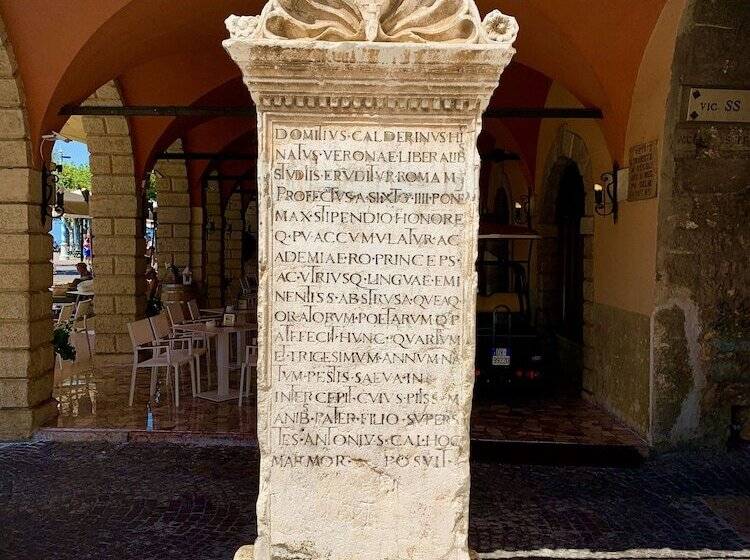 DOMITIVS·CALDERINVS·HI
NATVS·VERONAE·LIBERALIB
STVDIIS·ERVDITVR·ROMAM
PROFECTVS·A·SIXTO·IIII·PONE
MAX·STIPENDIO·HONORE
Q·PV·ACCVMVLATVR·AC
ADEMIAE·RO·PRINCEPS·
AC·VTRIVSQ·LINGVAE·EMI
NENTISS·ABSTRVSA·QVEAQ
ORATORVM·POETARVMQ·P
ATEFECIT·HVNC·QVARTVM
ET·TRIGESIMVM·ANNVM·NA
TVM·PESTIS·SAEVA·IN
INTERCEPIT·CVIVS·PIISS·M
ANIB·PATER·FILIO·SVPERS
TES·ANTONIVS·CAL·HOC
MARMOR· POSVIT·
VIC. SS